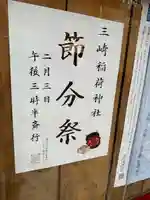 三崎稲荷神社
節分祭
二月三日
午後三時半斎行